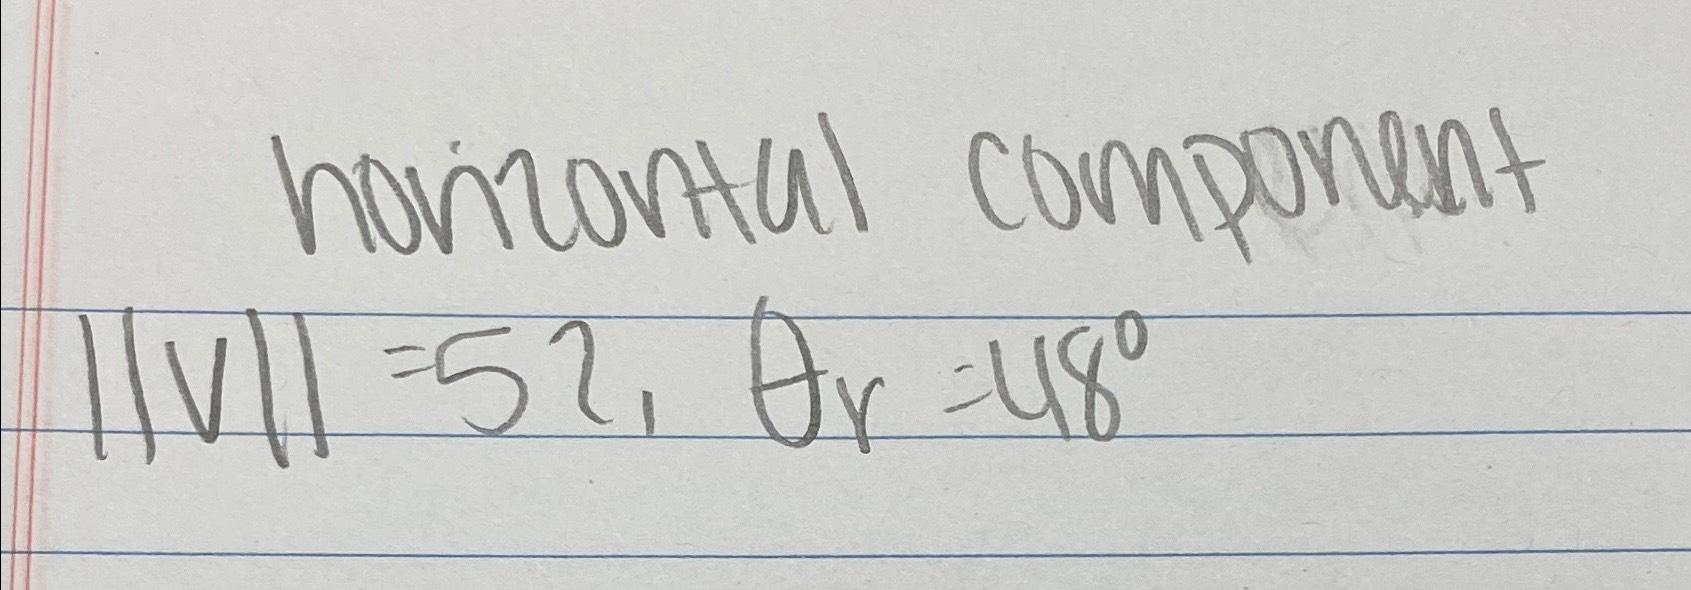 horizontal component
||v|| = 52, θr = 48°